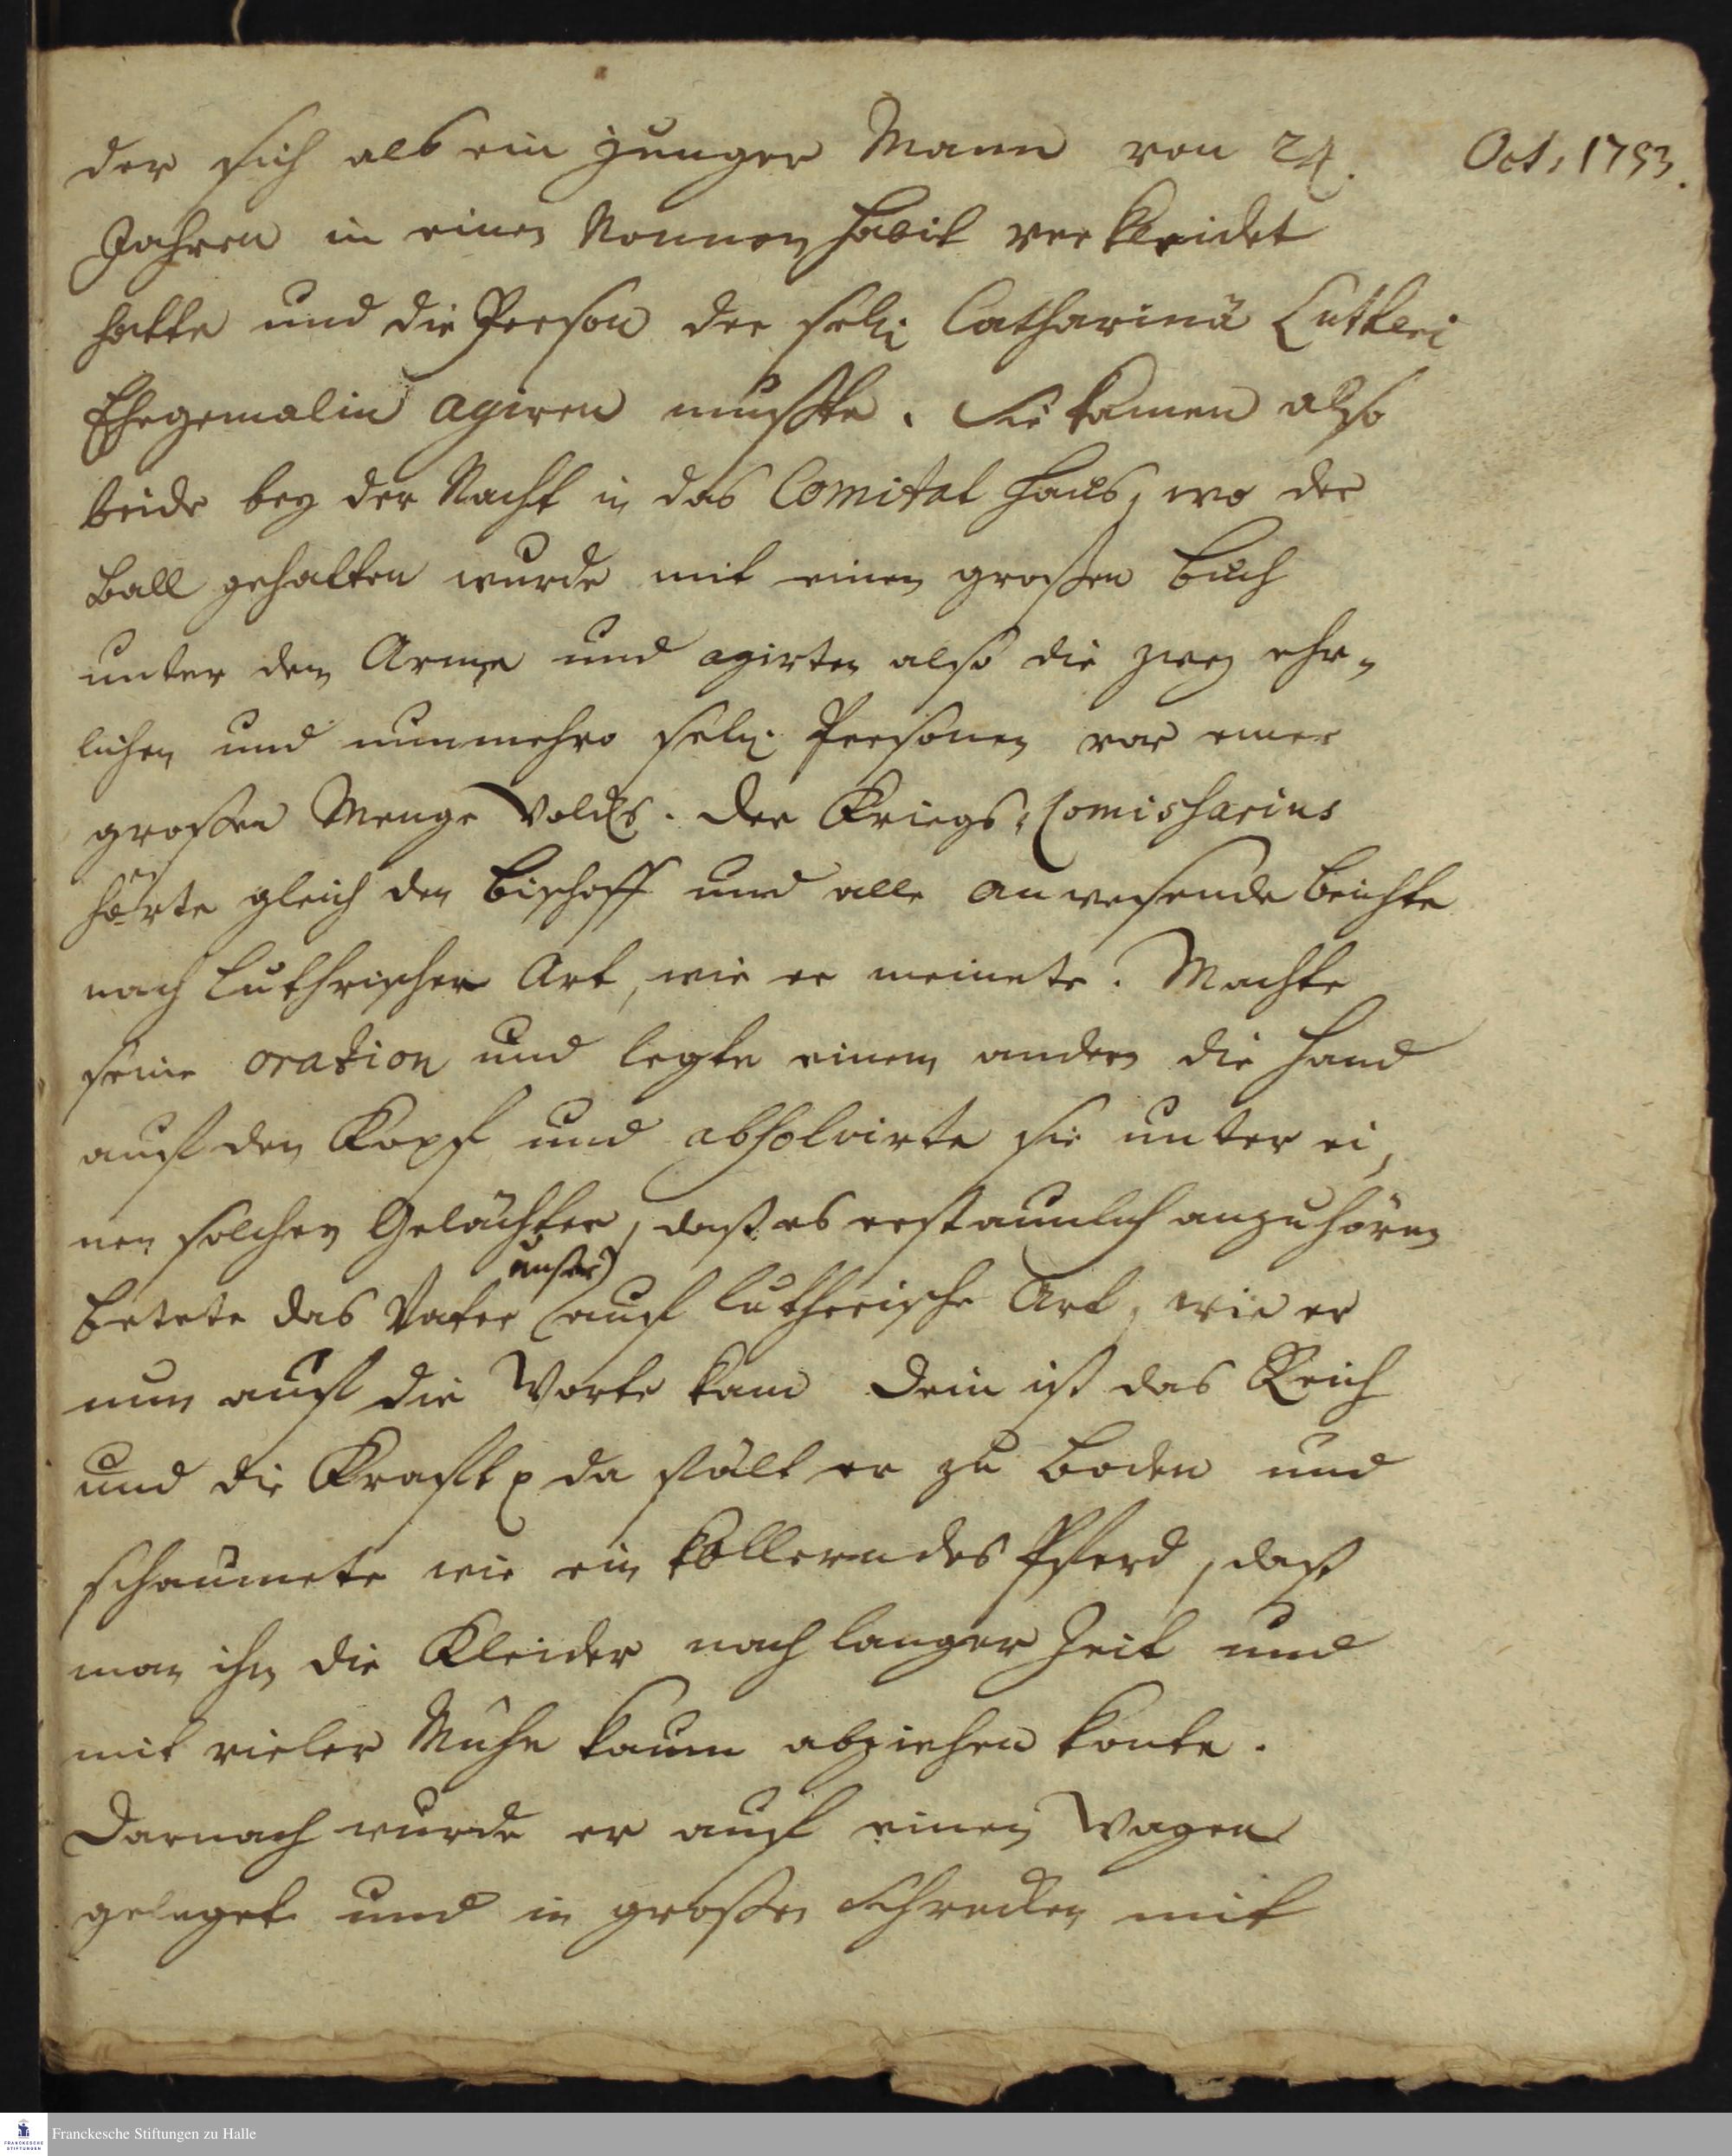 der sich als ein junger Mann von 24.
Oct. 1753.
Jahren in einen Nonnen Habit verkleidet
hatte und die Person der sel. Catharinä Lutheri
Ehegemalin agiren mußte. Sie kamen also
beide bey der Nacht in das Comitat Haus, wo der
Ball gehalten wurde mit einen großen Buch
unter den Arme und agirten also die zwey ehr-
lichen und nunmehro sel. Personen vor einer
großen Menge Volcks. Der Kriegs-Comissarius
hörte gleich den Bischoff und alle anwesende Beichte
nach Luthrischer Art, wie er meinete. Machte
seine oration und legte einem andern die Hand
auf den Kopf und absolvirte sie unter ei-
nen solchen Gelächter, daß es erstaunlich anzuhören
unser
betete das Vater auf lutherische Art, wie er
nun auf die Worte kam Dein ist das Reich
und die Krafft da fält er zu Boden und
schaumete wie ein kollerndes Pferd, daß
man ihn die Kleider nach langer Zeit und
mit vieler Mühe kaum abziehen konte.
Darnach wurde er auf einen Wagen
geleget und in großen Schrecken mit
Franckesche Stiftungen zu Halle
FRANCKESCHE
STIFTUNGEN